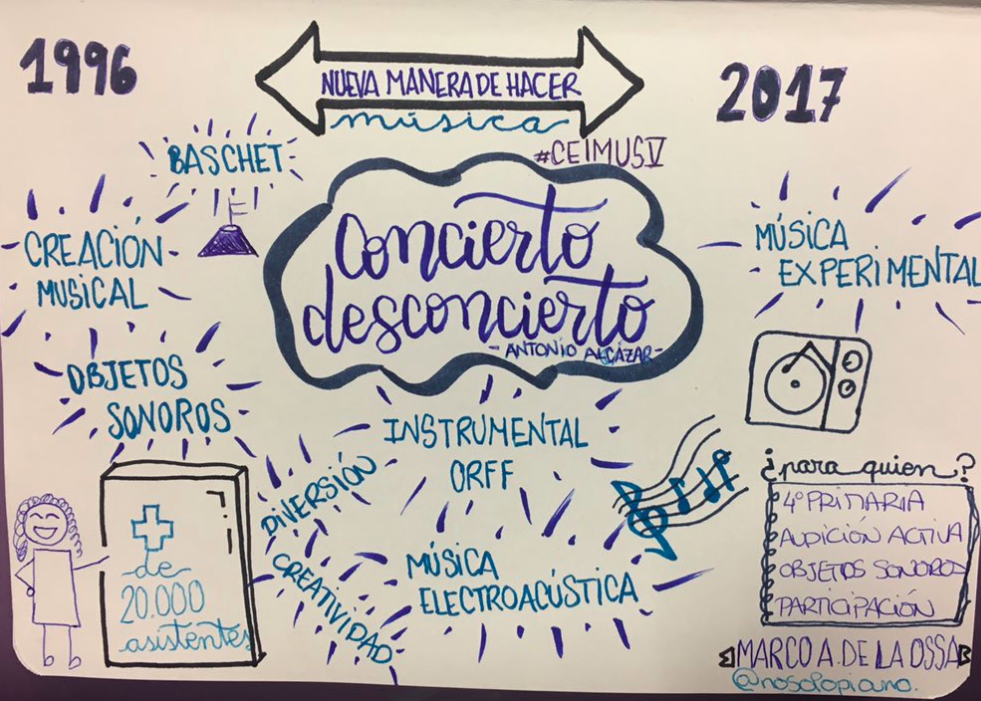 1996
NUEVA MANERA DE HACER
música
2017
#CEIMUSV
BASCHET
CREACIÓN
MUSICAL
Concierto
desconcierto
- ANTONIO ALCÁZAR -
MÚSICA
EXPERIMENTAL
OBJETOS
SONOROS
INSTRUMENTAL
ORFF
DIVERSIÓN
CREATIVIDAD
MÚSICA
ELECTROACÚSTICA
+
de
20.000
asistentes
¿para quien?
4º PRIMARIA
AUDICIÓN ACTIVA
OBJETOS SONOROS
PARTICIPACIÓN
MARCO A. DE LA OSSA
@nosolopiano.